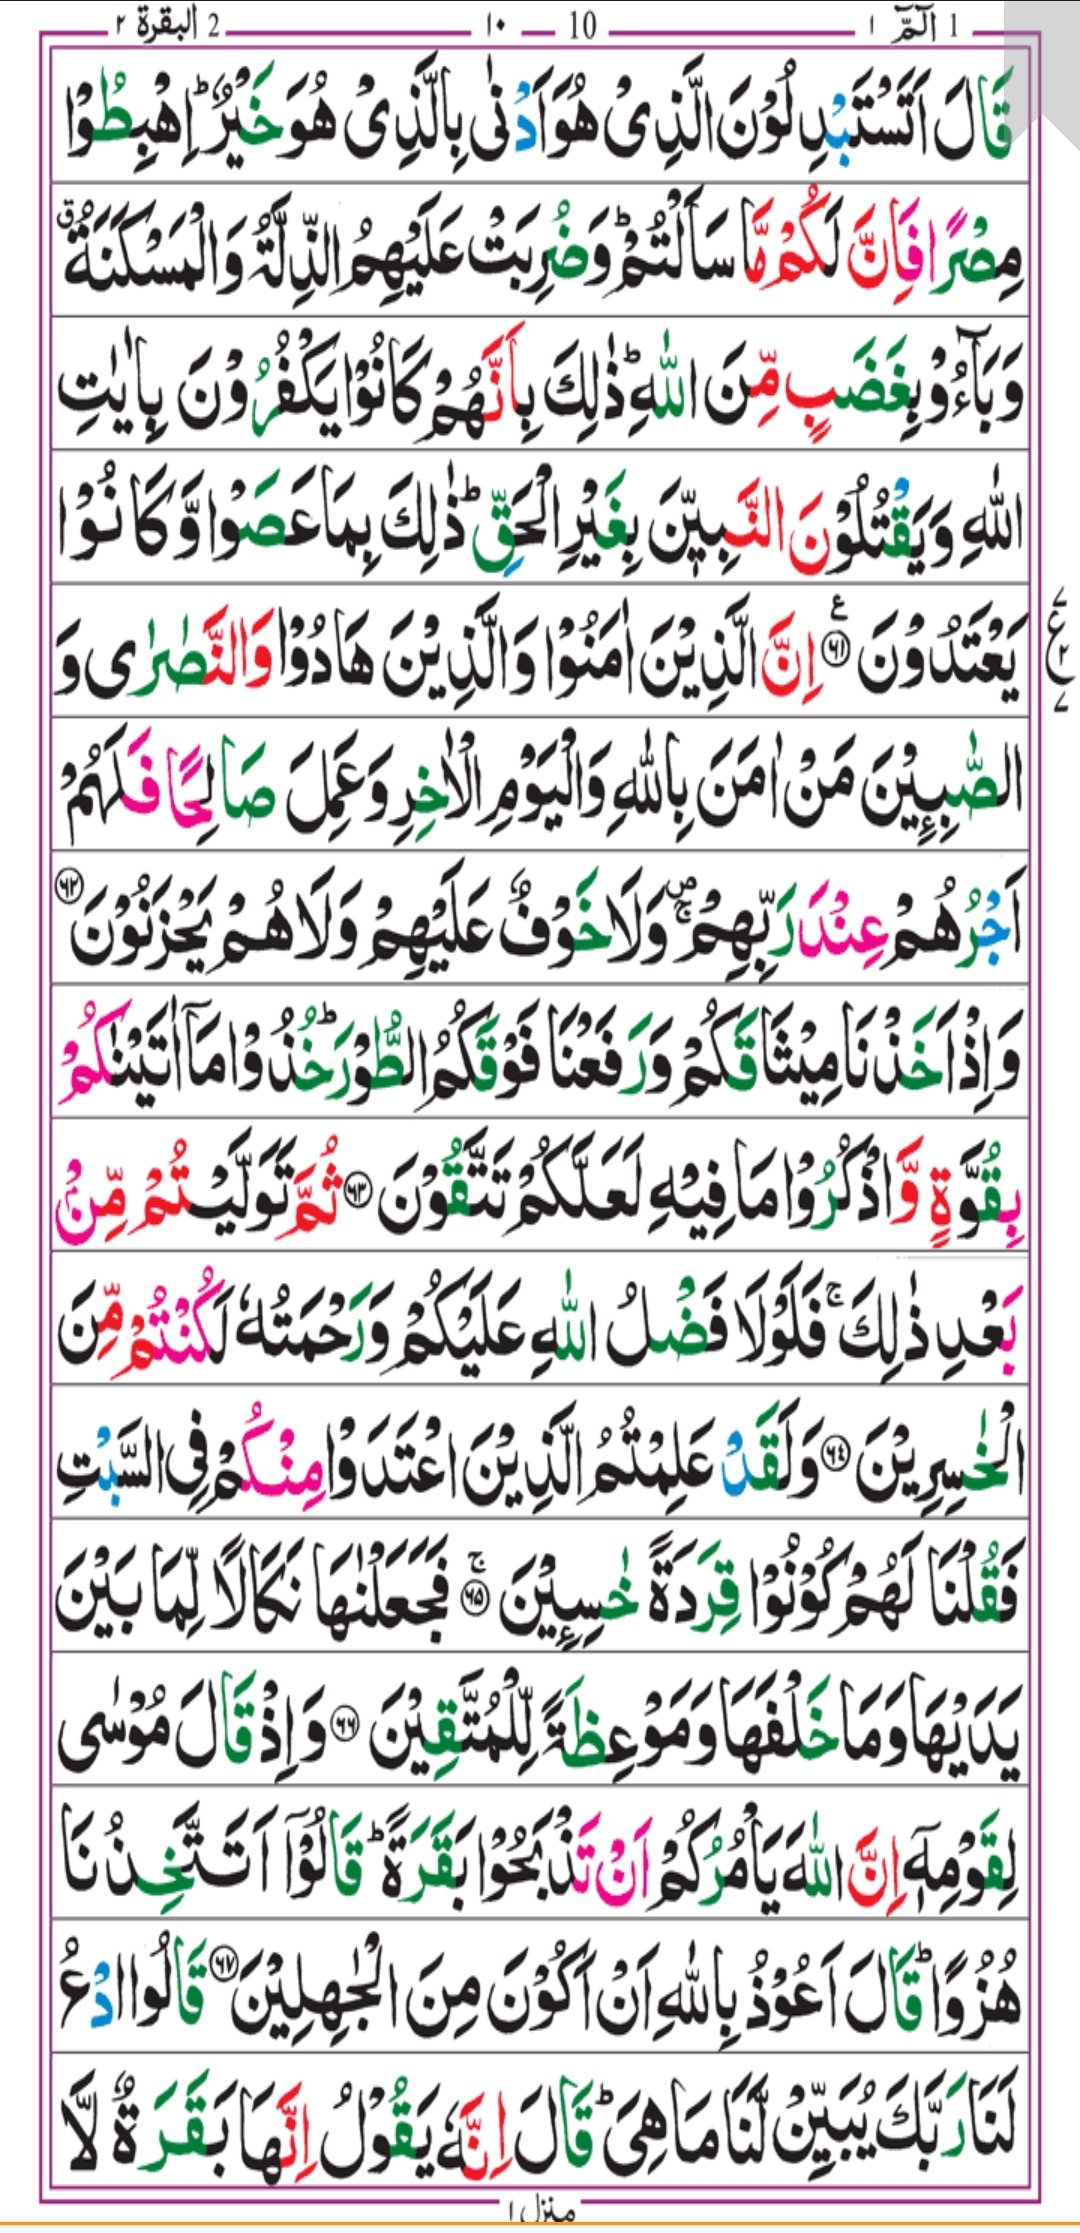 2 البقرة ٢ — 10 — ١٠ — 1 الٓمّٓ ١
قَالَ اَتَسْتَبْدِلُوْنَ الَّذِیْ هُوَ اَدْنٰی بِالَّذِیْ هُوَ خَیْرٌ ؕ اِهْبِطُوْا
مِصْرًا فَاِنَّ لَكُمْ مَّا سَاَلْتُمْ ؕ وَضُرِبَتْ عَلَیْهِمُ الذِّلَّةُ وَالْمَسْكَنَةُ ۗ
وَبَآءُوْ بِغَضَبٍ مِّنَ اللّٰهِ ؕ ذٰلِكَ بِاَنَّهُمْ كَانُوْا یَكْفُرُوْنَ بِاٰیٰتِ
اللّٰهِ وَیَقْتُلُوْنَ النَّبِیّٖنَ بِغَیْرِ الْحَقِّ ؕ ذٰلِكَ بِمَا عَصَوْا وَّكَانُوْا
یَعْتَدُوْنَ ۟۠ ﴿٦١﴾ اِنَّ الَّذِیْنَ اٰمَنُوْا وَالَّذِیْنَ هَادُوْا وَالنَّصٰرٰی وَ
الصّٰبِـِٕیْنَ مَنْ اٰمَنَ بِاللّٰهِ وَالْیَوْمِ الْاٰخِرِ وَعَمِلَ صَالِحًا فَلَهُمْ
اَجْرُهُمْ عِنْدَ رَبِّهِمْ ۪ۚ وَلَا خَوْفٌ عَلَیْهِمْ وَلَا هُمْ یَحْزَنُوْنَ ﴿٦٢﴾
وَاِذْ اَخَذْنَا مِیْثَاقَكُمْ وَرَفَعْنَا فَوْقَكُمُ الطُّوْرَ ؕ خُذُوْا مَاۤ اٰتَیْنٰكُمْ
بِقُوَّةٍ وَّاذْكُرُوْا مَا فِیْهِ لَعَلَّكُمْ تَتَّقُوْنَ ﴿٦٣﴾ ثُمَّ تَوَلَّیْتُمْ مِّنْۢ
بَعْدِ ذٰلِكَ ۚ فَلَوْلَا فَضْلُ اللّٰهِ عَلَیْكُمْ وَرَحْمَتُهٗ لَكُنْتُمْ مِّنَ
الْخٰسِرِیْنَ ﴿٦٤﴾ وَلَقَدْ عَلِمْتُمُ الَّذِیْنَ اعْتَدَوْا مِنْكُمْ فِی السَّبْتِ
فَقُلْنَا لَهُمْ كُوْنُوْا قِرَدَةً خٰسِـِٕیْنَ ۚ ﴿٦٥﴾ فَجَعَلْنٰهَا نَكَالًا لِّمَا بَیْنَ
یَدَیْهَا وَمَا خَلْفَهَا وَمَوْعِظَةً لِّلْمُتَّقِیْنَ ﴿٦٦﴾ وَاِذْ قَالَ مُوْسٰی
لِقَوْمِهٖۤ اِنَّ اللّٰهَ یَاْمُرُكُمْ اَنْ تَذْبَحُوْا بَقَرَةً ؕ قَالُوْۤا اَتَتَّخِذُنَا
هُزُوًا ؕ قَالَ اَعُوْذُ بِاللّٰهِ اَنْ اَكُوْنَ مِنَ الْجٰهِلِیْنَ ﴿٦٧﴾ قَالُوا ادْعُ
لَنَا رَبَّكَ یُبَیِّنْ لَّنَا مَا هِیَ ؕ قَالَ اِنَّهٗ یَقُوْلُ اِنَّهَا بَقَرَةٌ لَّا
منزل ١